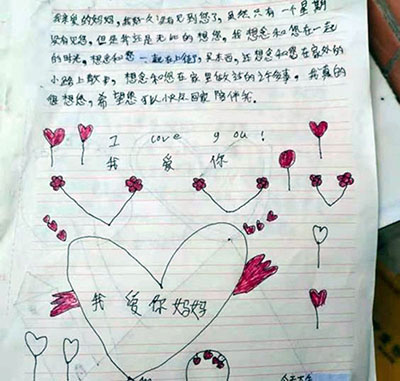 我亲爱的妈妈,我好久没有见到您了,虽然只有一个星期
没有见您,但是我还是无比的想您,我想念和您在一起
的时光,想念和您一起在上街,买东西,还想念和您在家外的
小路上散步,想念和您在家里做过的每个事,我真的
很想您,希望您可以快点回家陪伴我。
I love you!
我 爱 你
我 爱 你妈妈